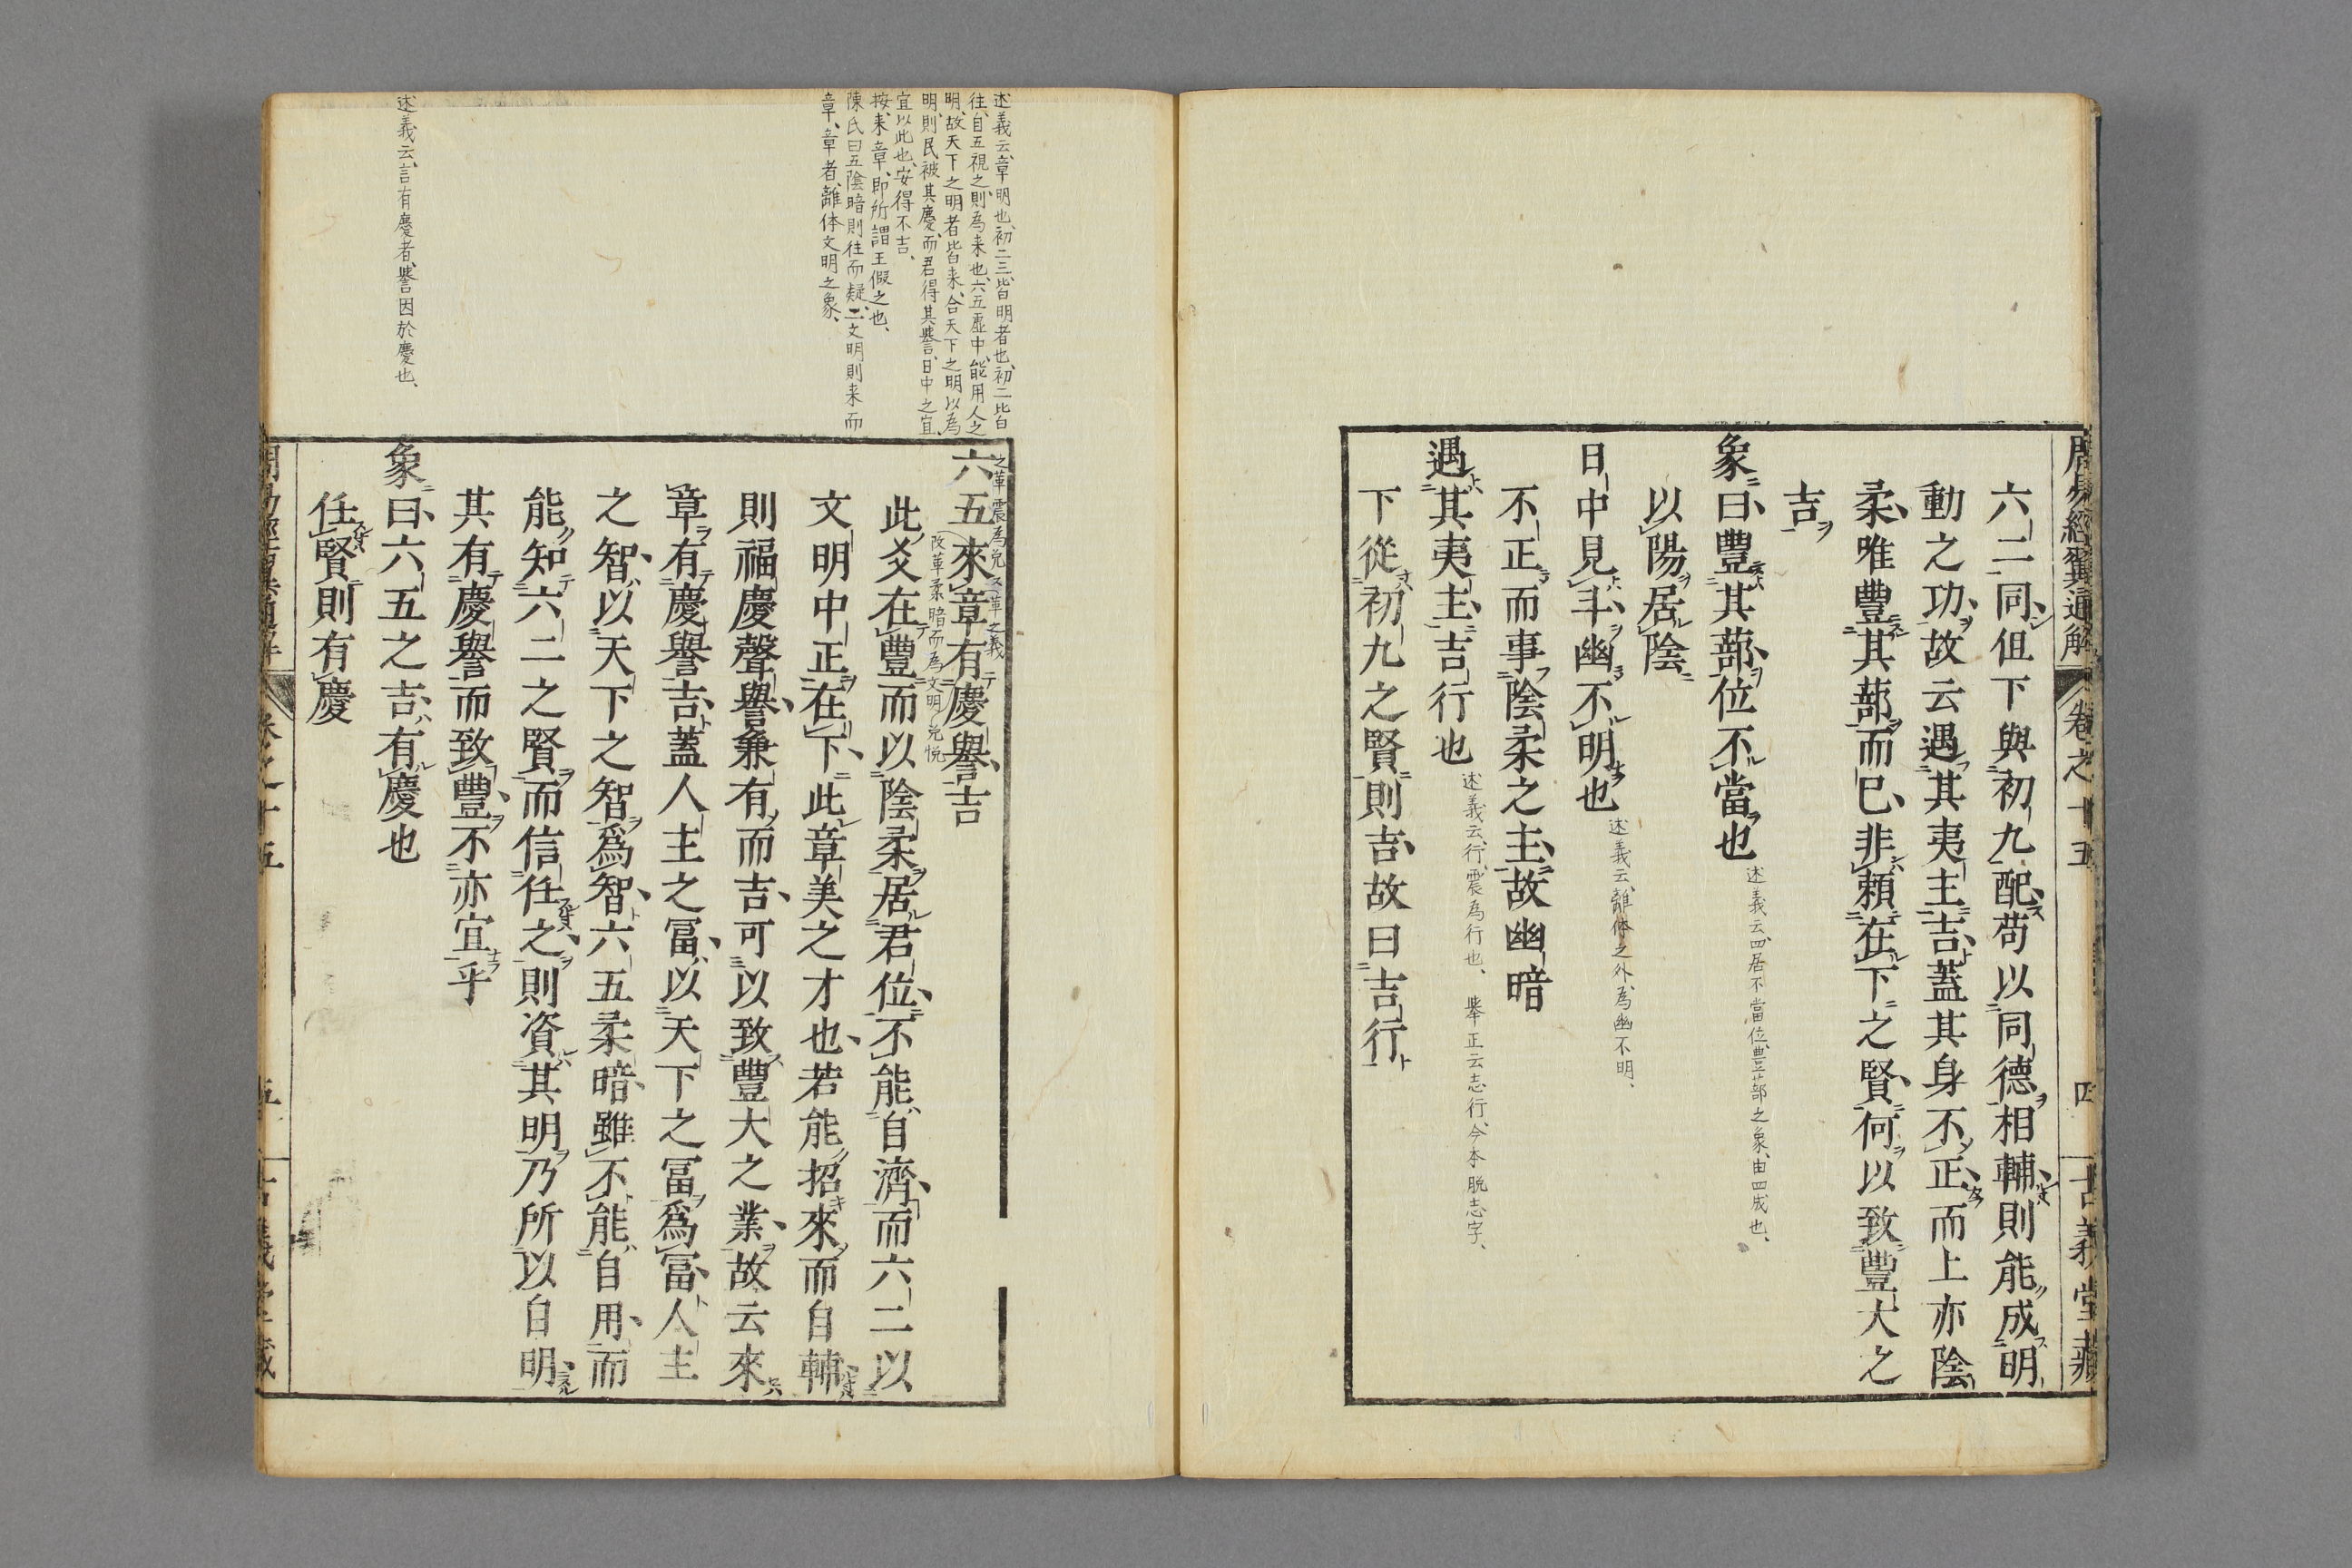 周易經翼通解 卷之十五 四 古義堂藏
六二同但下與初九配苟以同德相輔則能成明
動之功故云遇其夷主吉蓋其身不正而上亦陰
柔唯豐其蔀而已非頼在下之賢何以致豐大之
吉
象曰豐其蔀位不當也
述義云、四居不當位、豊蔀之象、由四成也、
以陽居陰
日中見斗幽不明也
述義云、離体之外、為幽不明、
不正而事陰柔之主故幽暗
遇其夷主吉行也
述義云、行、震為行也、 舉正云志行、今本脱志字、
下從初九之賢則吉故曰吉行
述義云、章明也、初二三、皆明者也、初二比自
往、自五視之、則為来也、六五虚中、能用人之
明、故天下之明者皆来、合天下之明以為
明、則民被其慶、而君得其譽、日中之宜、
宜以此也、安得不吉、
按、来章、即所謂王假之也、
陳氏曰五陰暗則往而疑、二文明則来而
章、章者、離体文明之象、
之革 震為兌 又革之義
六五來章有慶譽吉
改革柔暗而為文明兌悦
此爻在豐而以陰柔居君位不能自濟而六二以
文明中正在下此章美之才也若能招來而自輔
則福慶聲譽兼有而吉可以致豐大之業故云來
章有慶譽吉蓋人主之冨以天下之冨爲冨人主
之智以天下之智爲智六五柔暗雖不能自用而
能知六二之賢而信任之則資其明乃所以自明
其有慶譽而致豐不亦宜乎
述義云、言有慶者、譽因於慶也、
象曰六五之吉有慶也
任賢則有慶
卷之十五 五 古義堂藏